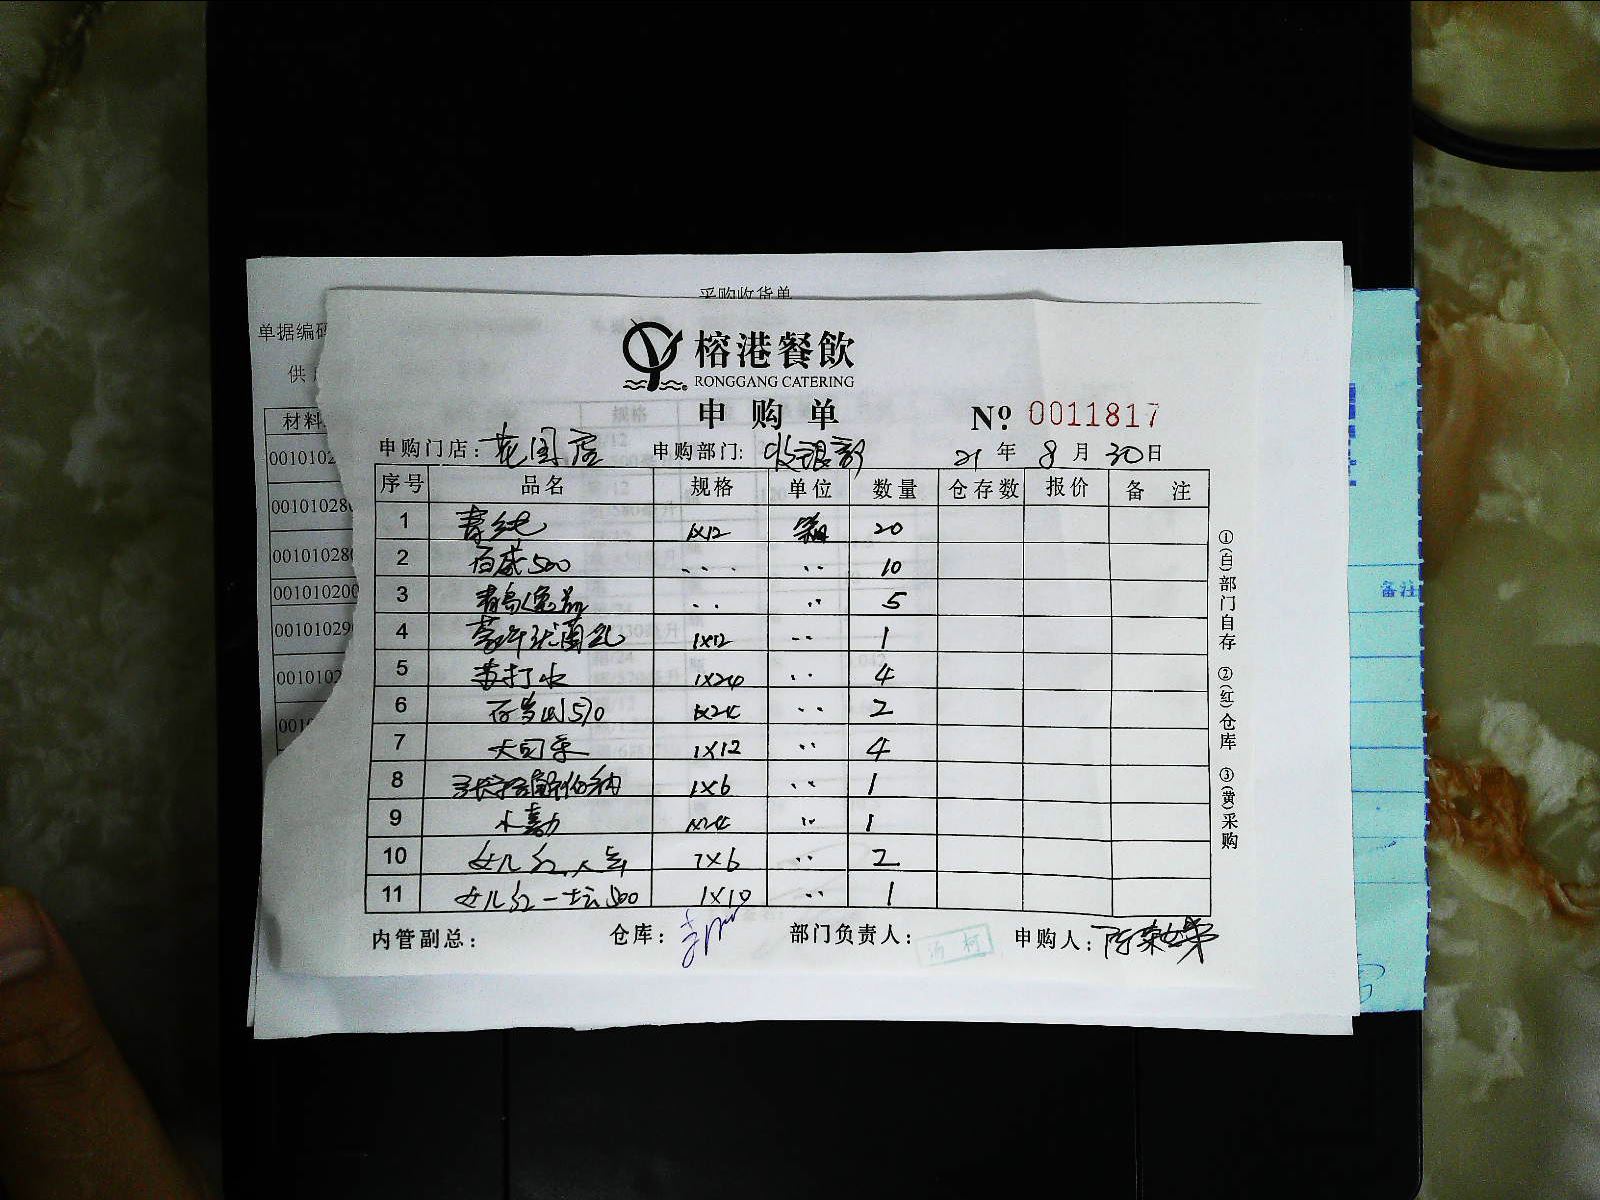 采购收货单
单据编码
供
榕港餐飲
RONGGANG CATERING
申购单
№ 0011817
申购门店: 花园店 申购部门: 收银部 21 年 8 月 30 日
材料
序号 品名 规格 单位 数量 仓存数 报价 备 注
1 青纯 1x12 箱 20
2 百威500 ‥‥ ‥ 10
3 青岛 ‥ ‥ 5
4 蒙牛优菌乳 1x12 ‥ 1
5 苏打水 1x24 ‥ 4
6 570 1x24 ‥ 2
7 大可乐 1x12 ‥ 4
8 1x6 ‥ 1
9 1x24 ‥ 1
10 女儿红 1x6 ‥ 2
11 女儿红一坛500 1x10 ‥ 1
内管副总: 仓库: 部门负责人: 汤柯 申购人:
①(白)部门自存 ②(红)仓库 ③(黄)采购
0010102
001010280
001010280
001010200
001010290
0010102
001
备注